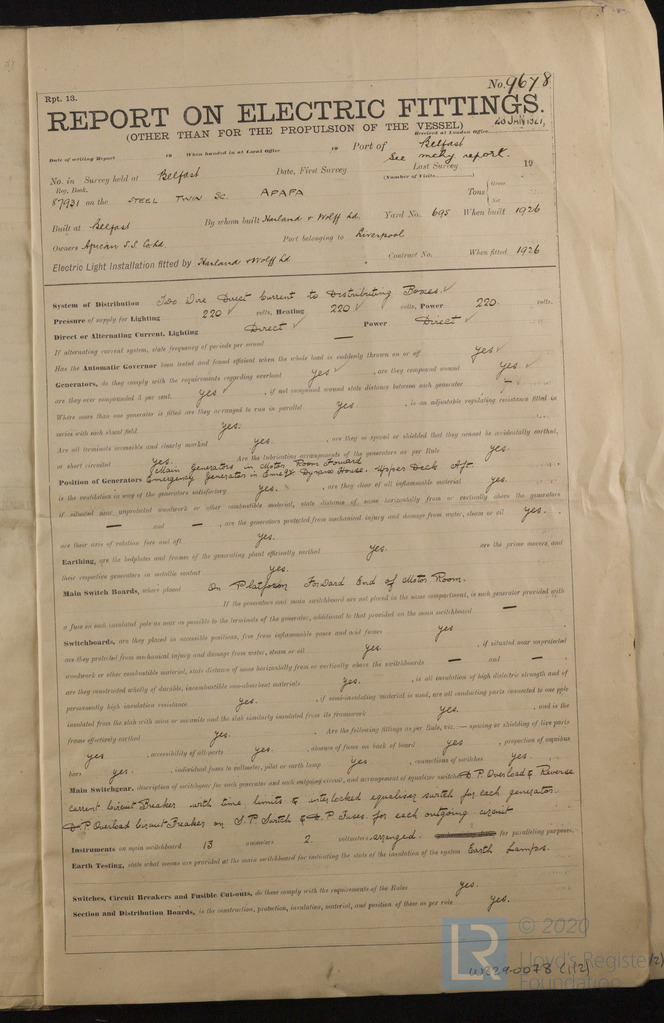 Rpt. 13.
No. 9678
REPORT ON ELECTRIC FITTINGS.
(OTHER THAN FOR THE PROPULSION OF THE VESSEL)
Received at London Office 26 JAN 1927
Date of writing Report 19 When handed in at Local Office 19 Port of Belfast
No. in Survey held at Belfast Date, First Survey See mchy report. Last Survey 19
Reg. Book. (Number of Visits
87931 on the STEEL TWIN SC. APAPA Tons { Gross Net
Built at Belfast By whom built Harland & Wolff Ld. Yard No. 695 When built 1926
Owners African S.S. Co Ld. Port belonging to Liverpool
Electric Light Installation fitted by Harland & Wolff Ld Contract No. When fitted 1926
System of Distribution Two Wire Direct Current to Distributing Boxes. ✓
Pressure of supply for Lighting 220 ✓ volts, Heating 220 ✓ volts, Power 220 volts.
Direct or Alternating Current, Lighting Direct ✓ Power Direct ✓
If alternating current system, state frequency of periods per second —
Has the Automatic Governor been tested and found efficient when the whole load is suddenly thrown on or off yes ✓
Generators, do they comply with the requirements regarding overload yes ✓, are they compound wound yes. ✓
are they over compounded 5 per cent. yes ✓, if not compound wound state distance between each generator —
Where more than one generator is fitted are they arranged to run in parallel yes., is an adjustable regulating resistance fitted in
series with each shunt field yes.
Are all terminals accessible and clearly marked yes., are they so spaced or shielded that they cannot be accidentally earthed,
or short circuited yes. Are the lubricating arrangements of the generators as per Rule yes.
Main Generators in Motor Room Forward
Position of Generators Emergency Generator in Emgy Dynamo House. Upper Deck Aft.
is the ventilation in way of the generators satisfactory yes., are they clear of all inflammable material yes.
if situated near unprotected woodwork or other combustible material, state distance of same horizontally from or vertically above the generators
— and —, are the generators protected from mechanical injury and damage from water, steam or oil yes.
are their axis of rotation fore and aft yes.
Earthing, are the bedplates and frames of the generating plant efficiently earthed yes. are the prime movers and
their respective generators in metallic contact yes.
Main Switch Boards, where placed On Platform Forward End of Motor Room.
If the generators and main switchboard are not placed in the same compartment, is each generator provided with
a fuse on each insulated pole as near as possible to the terminals of the generator, additional to that provided on the main switchboard —
Switchboards, are they placed in accessible positions, free from inflammable gases and acid fumes yes
are they protected from mechanical injury and damage from water, steam or oil yes., if situated near unprotected
woodwork or other combustible material, state distance of same horizontally from or vertically above the switchboards — and —
are they constructed wholly of durable, incombustible non-absorbent materials yes., is all insulation of high dielectric strength and of
permanently high insulation resistance yes., if semi-insulating material is used, are all conducting parts connected to one pole
insulated from the slab with mica or micanite and the slab similarly insulated from its framework yes., and is the
frame effectively earthed yes. Are the following fittings as per Rule, viz.:— spacing or shielding of live parts
yes, accessibility of all parts yes., absence of fuses on back of board yes, proportion of omnibus
bars yes., individual fuses to voltmeter, pilot or earth lamp yes., connections of switches yes.
Main Switchgear, description of switchgear for each generator and each outgoing circuit, and arrangement of equaliser switches D.P. Overload & Reverse
current Circuit Breaker with time limits & interlocked equaliser switch for each generator
D.P. Overload Circuit Breaker or S.P. Switch & D.P. Fuses for each outgoing circuit
Instruments on main switchboard 13 ammeters 2 voltmeters arranged for paralleling purposes.
Earth Testing, state what means are provided at the main switchboard for indicating the state of the insulation of the system Earth Lamps.
Switches, Circuit Breakers and Fusible Cut-outs, do these comply with the requirements of the Rules yes.
Section and Distribution Boards, is the construction, protection, insulation, material, and position of these as per rule yes.
LR © 2020
Lloyd's Register
Foundation
W329-0078 (1/2)